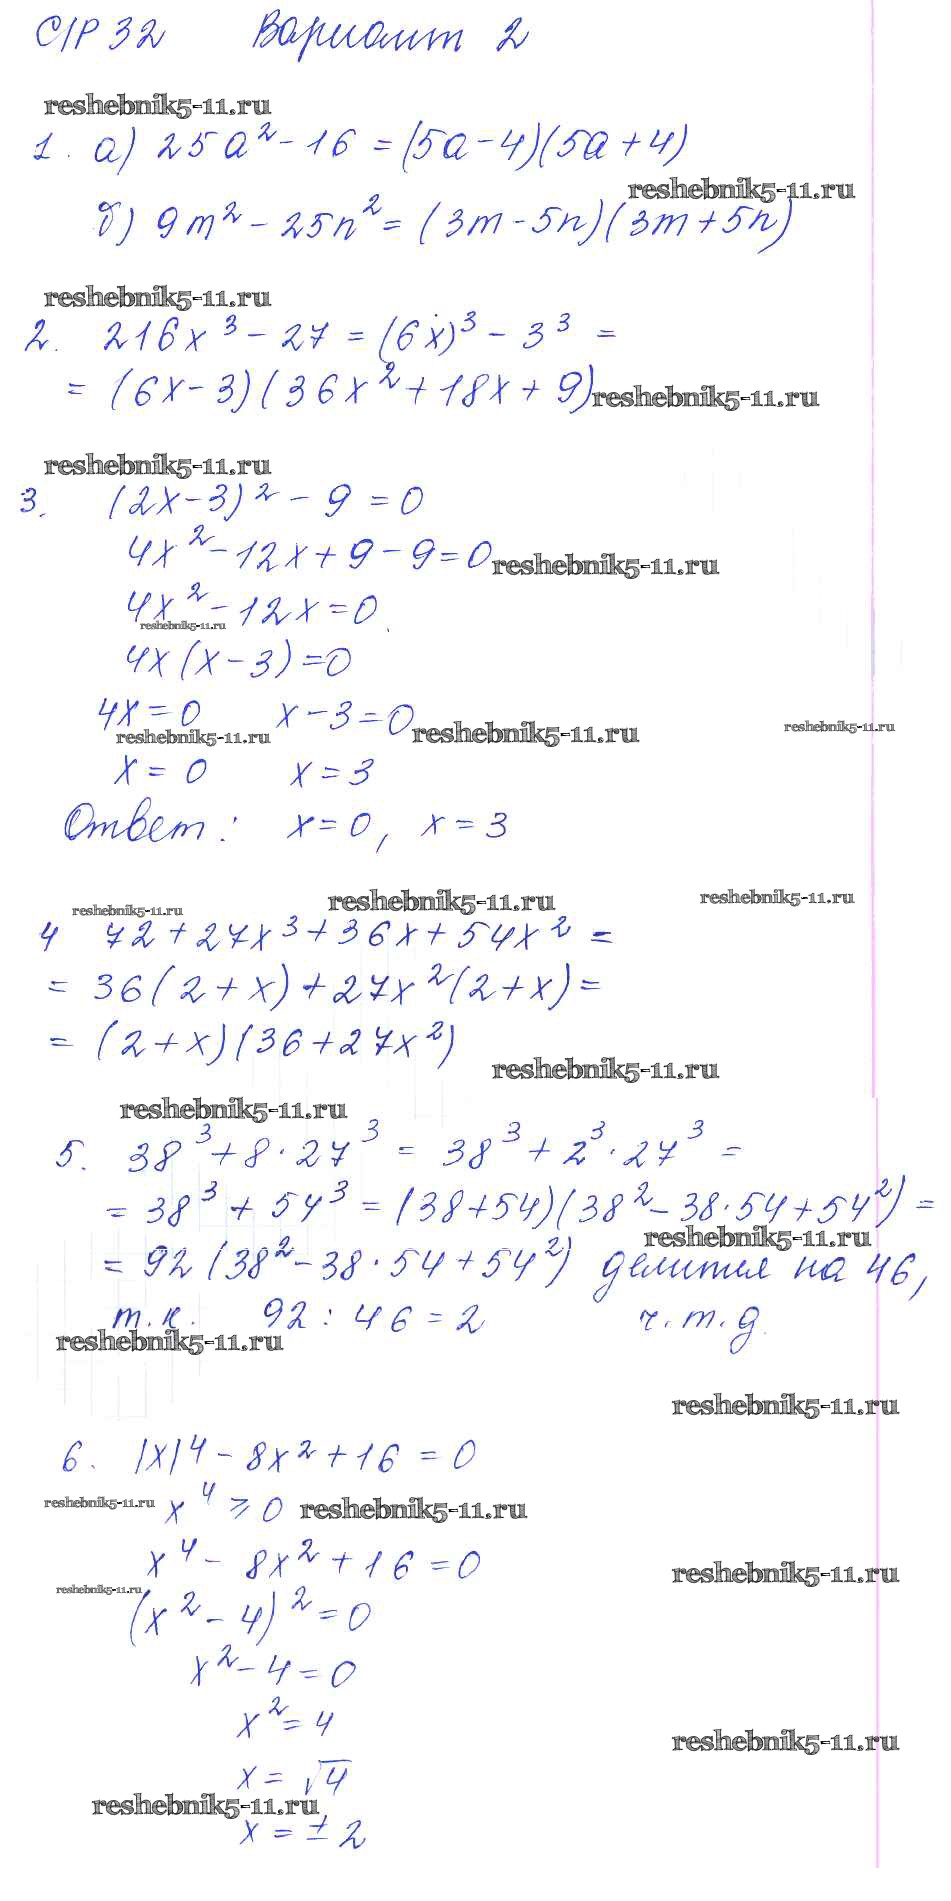 С/Р 32 Вариант 2
reshebnik5-11.ru
1. а) 25a² - 16 = (5a - 4)(5a + 4)
reshebnik5-11.ru
б) 9m² - 25n² = (3m - 5n)(3m + 5n)
reshebnik5-11.ru
2. 216x³ - 27 = (6x)³ - 3³ =
= (6x - 3)(36x² + 18x + 9)
reshebnik5-11.ru
reshebnik5-11.ru
3. (2x - 3)² - 9 = 0
4x² - 12x + 9 - 9 = 0
reshebnik5-11.ru
4x² - 12x = 0
reshebnik5-11.ru
4x(x - 3) = 0
4x = 0 x - 3 = 0
reshebnik5-11.ru reshebnik5-11.ru reshebnik5-11.ru
x = 0 x = 3
Ответ: x = 0, x = 3
reshebnik5-11.ru reshebnik5-11.ru reshebnik5-11.ru
4 72 + 27x³ + 36x + 54x² =
= 36(2 + x) + 27x²(2 + x) =
= (2 + x)(36 + 27x²)
reshebnik5-11.ru
reshebnik5-11.ru
5. 38³ + 8 · 27³ = 38³ + 2³ · 27³ =
= 38³ + 54³ = (38 + 54)(38² - 38 · 54 + 54²) =
reshebnik5-11.ru
= 92(38² - 38 · 54 + 54²) делится на 46,
т.к. 92 : 46 = 2 ч.т.д.
reshebnik5-11.ru
reshebnik5-11.ru
6. |x|⁴ - 8x² + 16 = 0
reshebnik5-11.ru x⁴ ⩾ 0 reshebnik5-11.ru
x⁴ - 8x² + 16 = 0
reshebnik5-11.ru
reshebnik5-11.ru
(x² - 4)² = 0
x² - 4 = 0
x² = 4
reshebnik5-11.ru
x = √4
reshebnik5-11.ru
x = ± 2